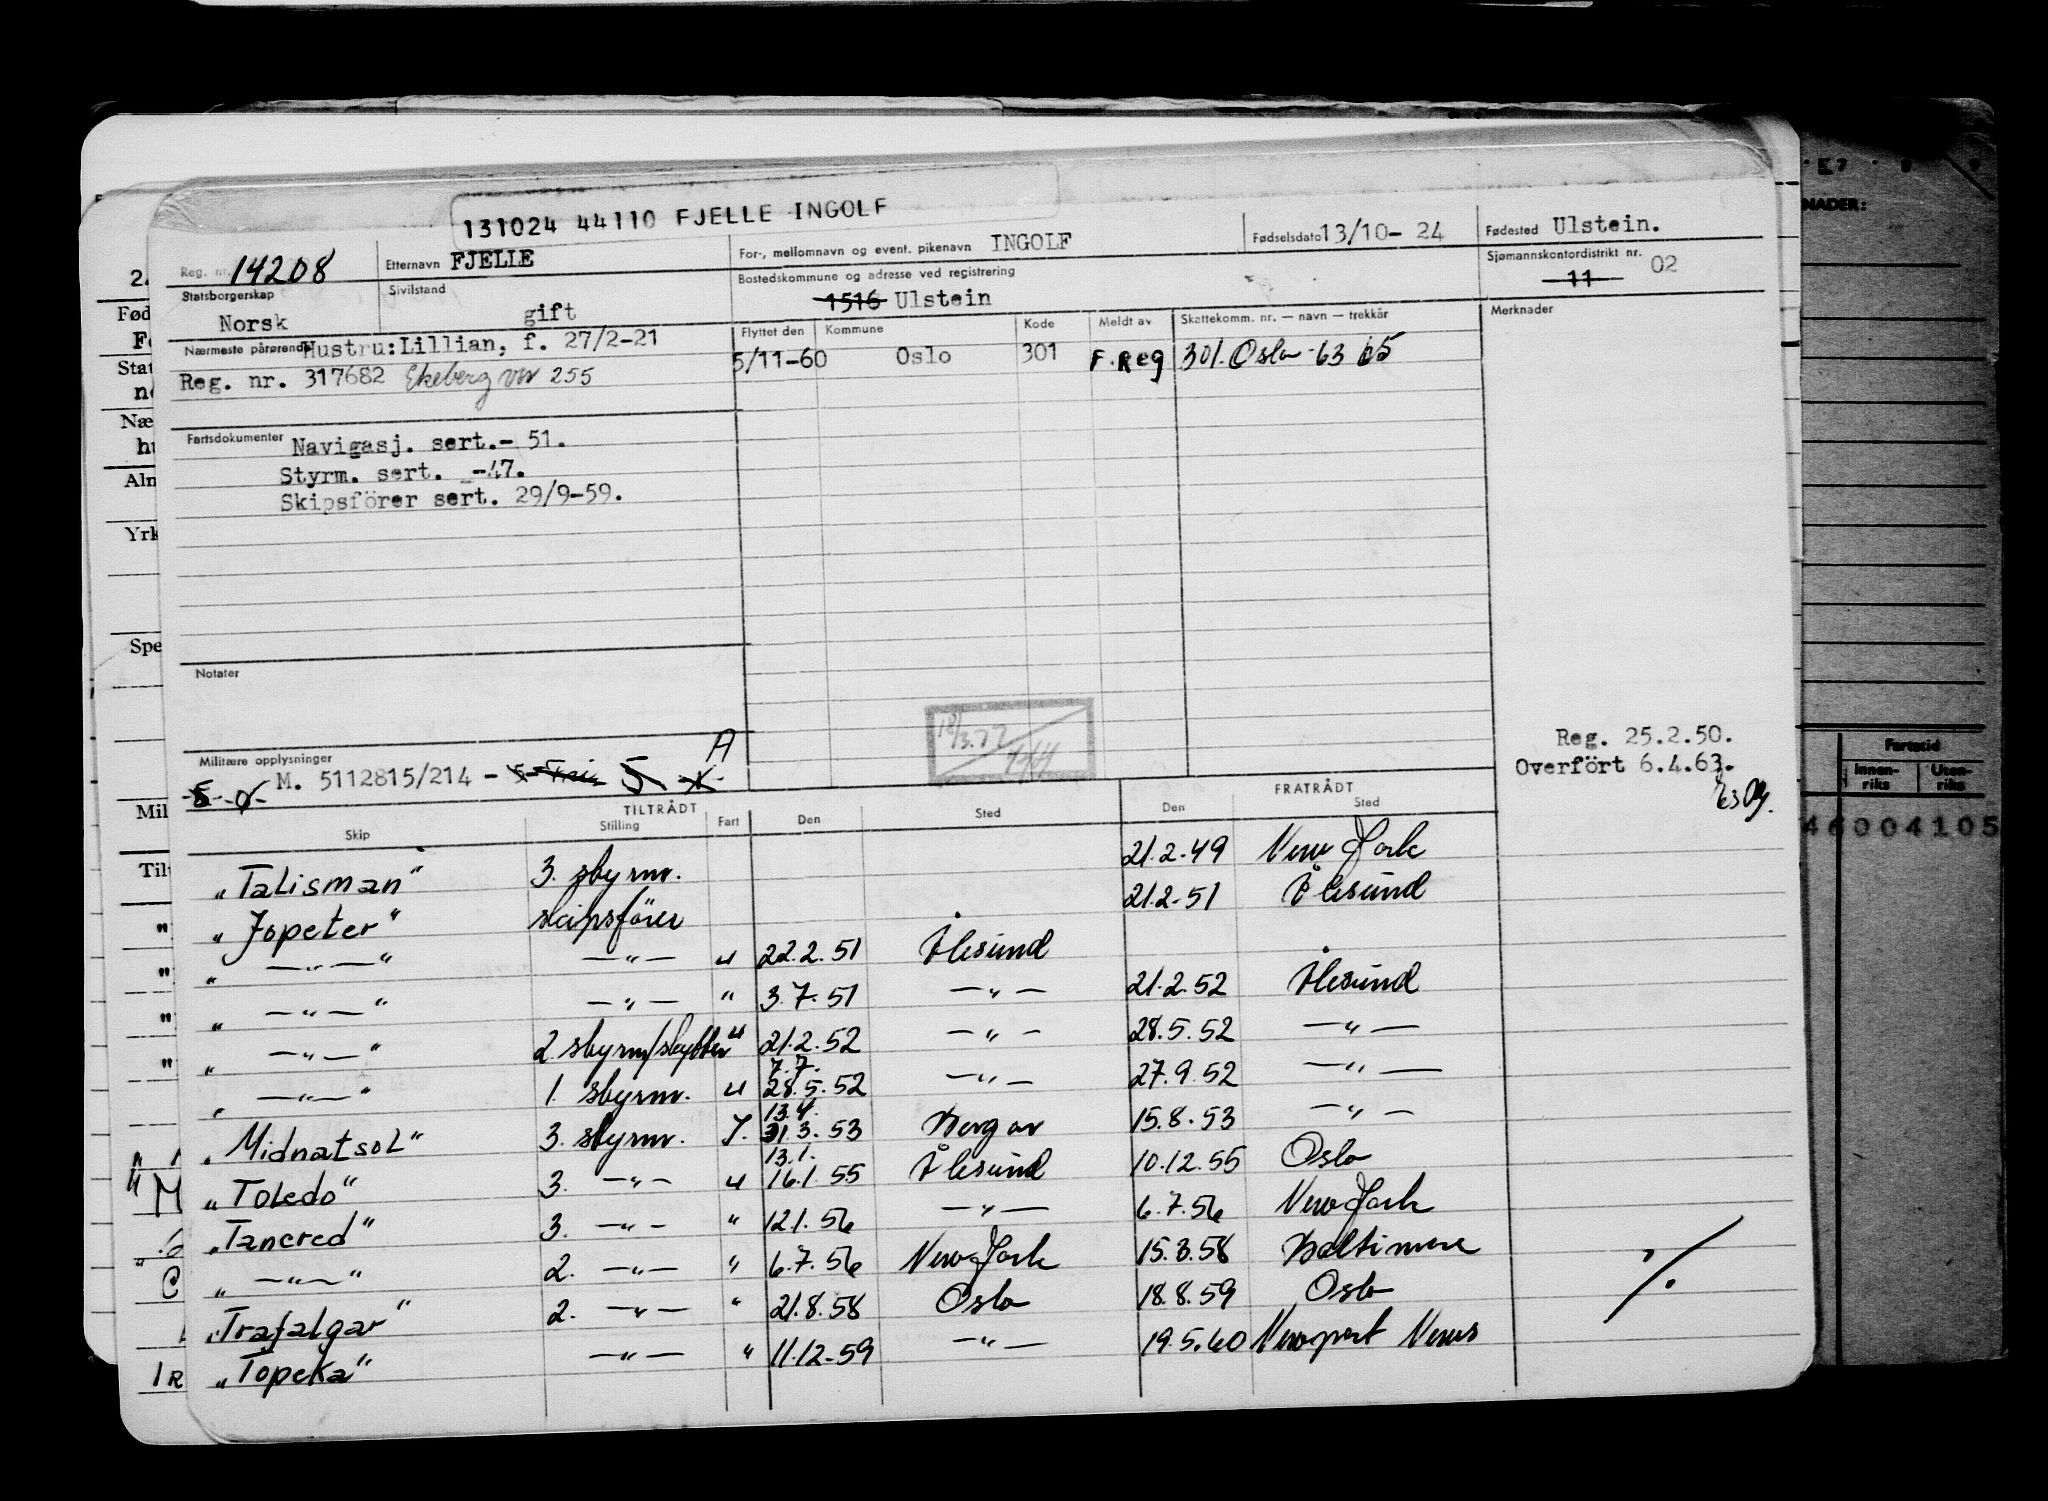 131024 44110 FJELLE INGOLF
Reg. nr. 14208 Etternavn FJELLE For-, mellomnavn og event. pikenavn INGOLF Fødselsdato 13/10- 24 Fødested Ulstein.
Statsborgerskap Norsk Sivilstand gift Bostedskommune og adresse ved registrering 1516 Ulstein Sjømannskontordistrikt nr. 11 02
Nærmeste pårørende Hustru: Lillian, f. 27/2-21 Flyttet den Kommune Kode Meldt av Skattekomm. nr. — navn — trekkår Merknader
Reg. nr. 317682 Ekeberg vn 255 5/11-60 Oslo 301 F. Reg 301. Oslo -63 65
Fartsdokumenter Navigasj. sert.- 51.
Styrm. sert. -47.
Skipsförer sert. 29/9-59.
Notater
Reg. 25.2.50.
Overfört 6.4.63.
Militære opplysninger A
M. 5112815/214 -
TILTRÅDT FRATRÅDT
Skip Stilling Fart Den Sted Den Sted
"Talisman" 3. styrm. 21.2.49 New York
"Jopeter" skipsfører 21.2.51 Ålesund
" — " — " — " — " 22.2.51 Ålesund
" — " — " — " — " 3.7.51 — " — 21.2.52 Ålesund
" — " — " 2 styrm/skytter " 21.2.52 — " — 28.5.52 — " —
7.7.
" — " — " 1. styrm. " 28.5.52 — " — 27.9.52 — " —
13.4.
"Midnatsol" 3. styrm. I. 31.3.53 Bergen 15.8.53 — " —
13.1.
"Toledo" 3. — " — " 16.1.55 Ålesund 10.12.55 Oslo
"Tancred" 3. — " — " 12.1.56 — " — 6.7.56 New York
" — " — " 2. — " — " 6.7.56 New York 15.3.58 Baltimore
"Trafalgar" 2. — " — " 21.8.58 Oslo 18.8.59 Oslo
"Topeka" — " — " 11.12-59 — " — 19.5.60 Newport News
NADER:
Fartstid
Innen-riks Uten-riks
46004105